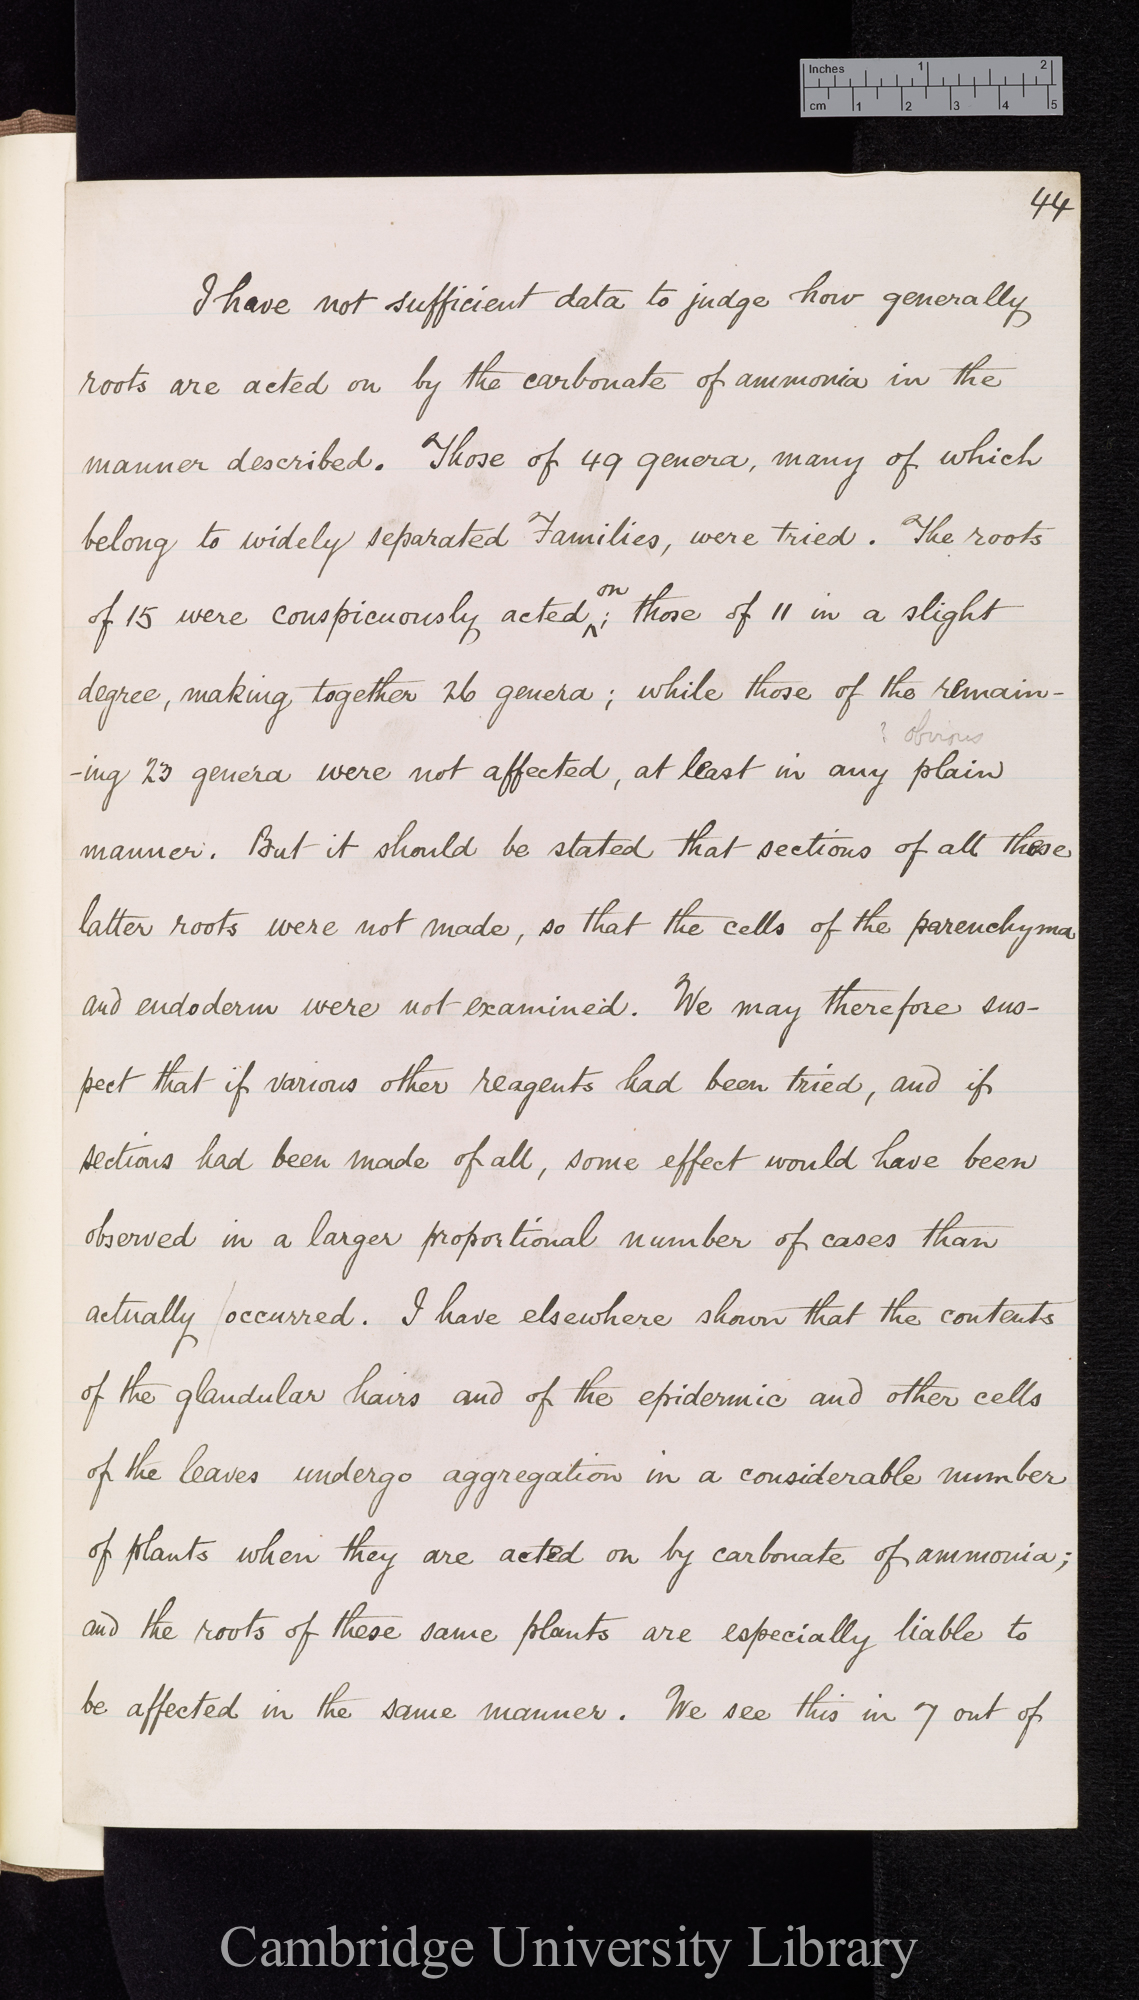 Inches 1 2
cm 1 2 3 4 5
44
I have not sufficient data to judge how generally
roots are acted on by the carbonate of ammonia in the
manner described. Those of 49 genera, many of which
belong to widely separated Families, were tried. The roots
of 15 were conspicuously acted on; those of 11 in a slight
degree, making together 26 genera; while those of the remain-
? obvious
-ing 23 genera were not affected, at least in any plain
manner. But it should be stated that sections of all these
latter roots were not made, so that the cells of the parenchyma
and endoderm were not examined. We may therefore sus-
pect that if various other reagents had been tried, and if
sections had been made of all, some effect would have been
observed in a larger proportional number of cases than
actually occurred. I have elsewhere shown that the contents
of the glandular hairs and of the epidermic and other cells
of the leaves undergo aggregation in a considerable number
of plants when they are acted on by carbonate of ammonia;
and the roots of these same plants are especially liable to
be affected in the same manner. We see this in 7 out of
Cambridge University Library